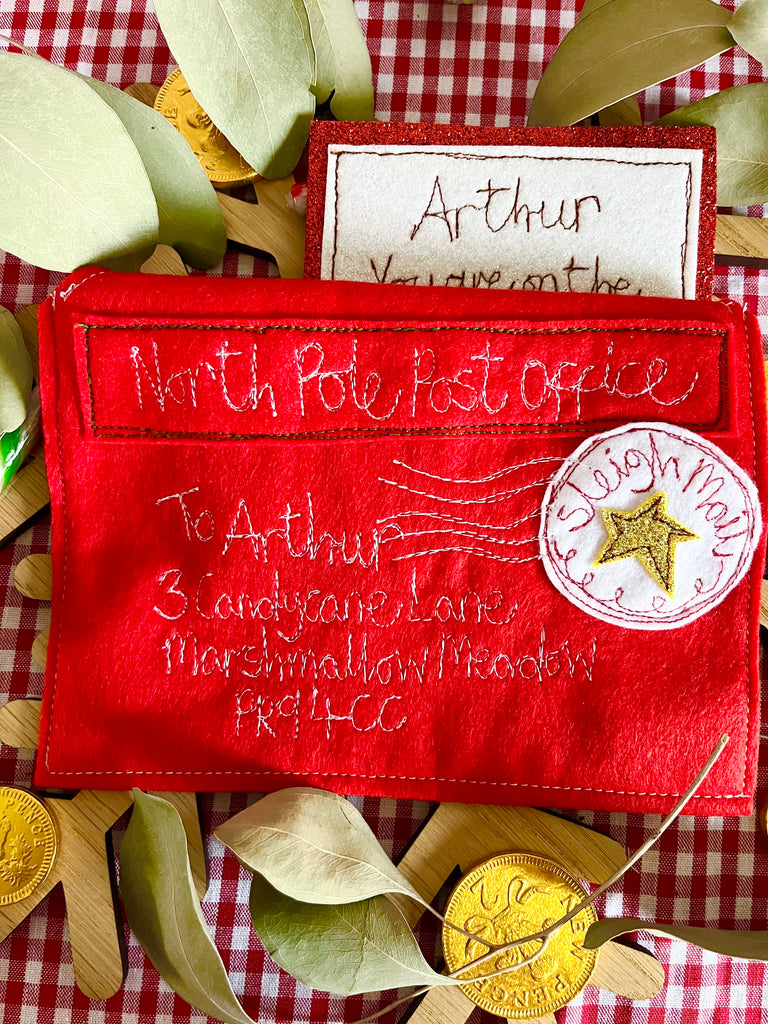 Arthur
You are on the
North Pole Post Office
Sleigh Mail
To Arthur
3 Candycane Lane
Marshmallow Meadow
PR9 4CC
NEW PENCE
2
PENCE